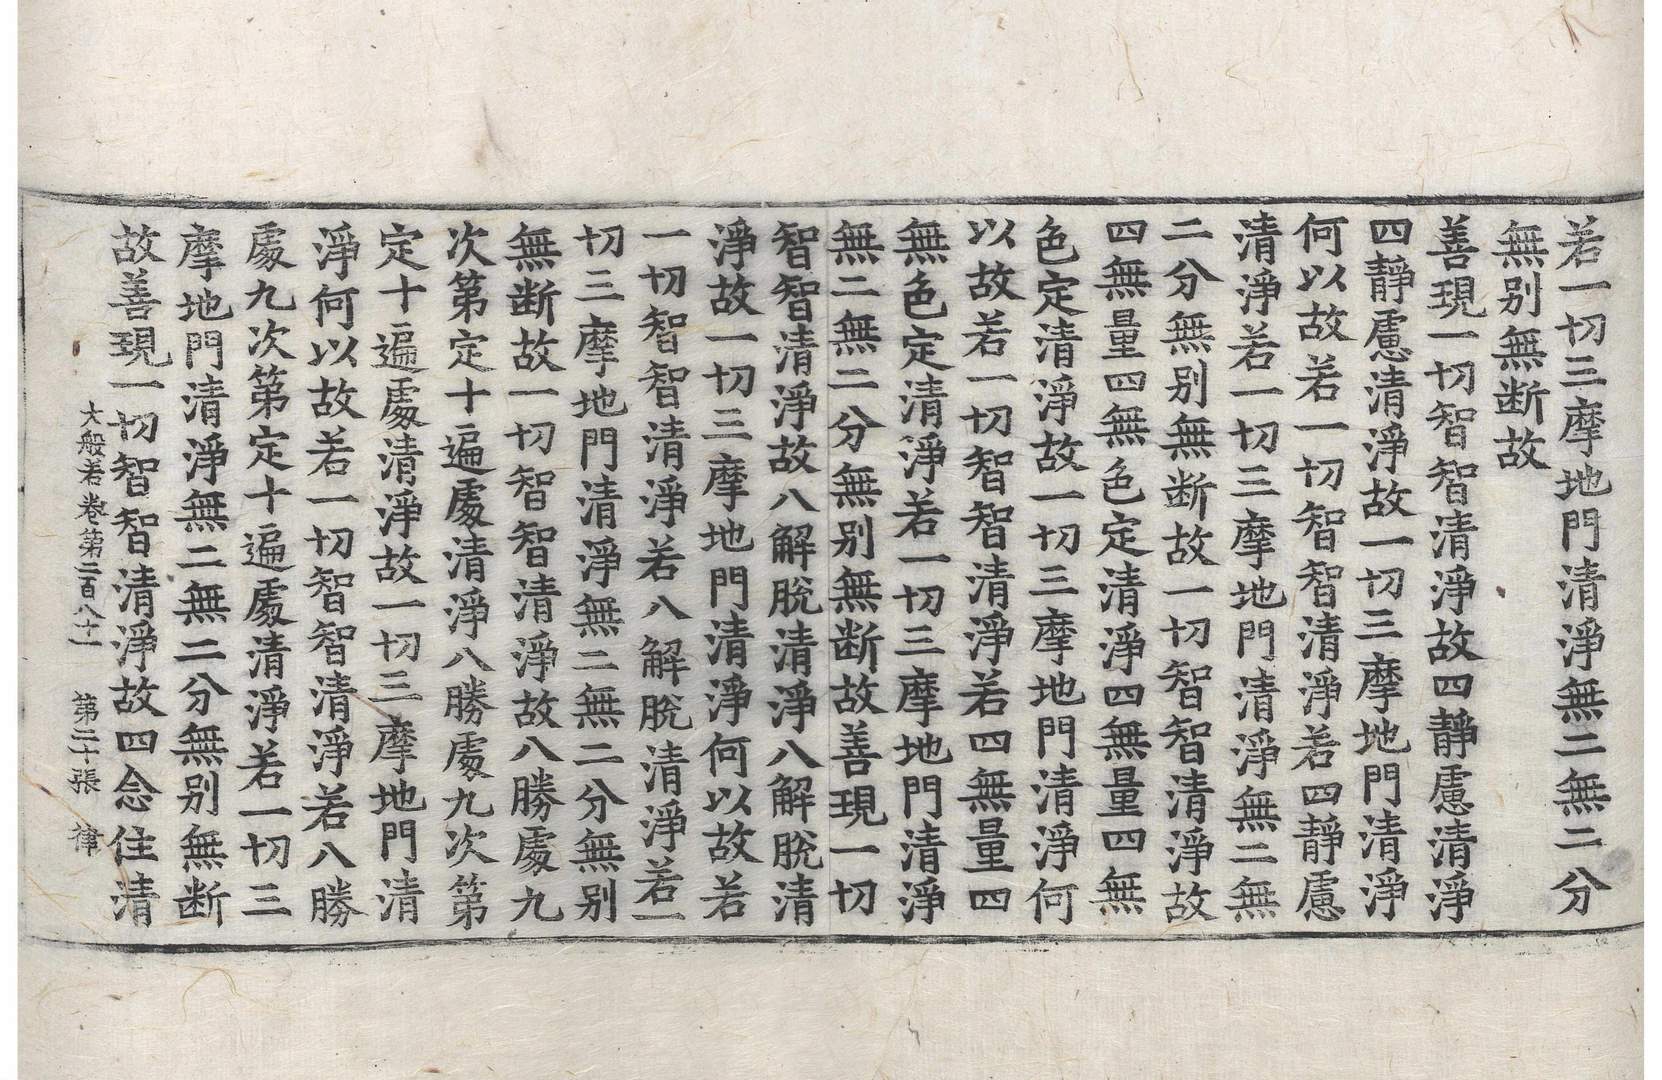 若一切三摩地門清淨無二無二分
無別無斷故
善現一切智智清淨故四靜慮清淨
四靜慮清淨故一切三摩地門清淨
何以故若一切智智清淨若四靜慮
清淨若一切三摩地門清淨無二無
二分無別無斷故一切智智清淨故
四無量四無色定清淨四無量四無
色定清淨故一切三摩地門清淨何
以故若一切智智清淨若四無量四
無色定清淨若一切三摩地門清淨
無二無二分無別無斷故善現一切
智智清淨故八解脫清淨八解脫清
淨故一切三摩地門清淨何以故若
一切智智清淨若八解脫清淨若一
切三摩地門清淨無二無二分無別
無斷故一切智智清淨故八勝處九
次第定十遍處清淨八勝處九次第
定十遍處清淨故一切三摩地門清
淨何以故若一切智智清淨若八勝
處九次第定十遍處清淨若一切三
摩地門清淨無二無二分無別無斷
故善現一切智智清淨故四念住清
大般若卷第二百八十一 第二十張 律